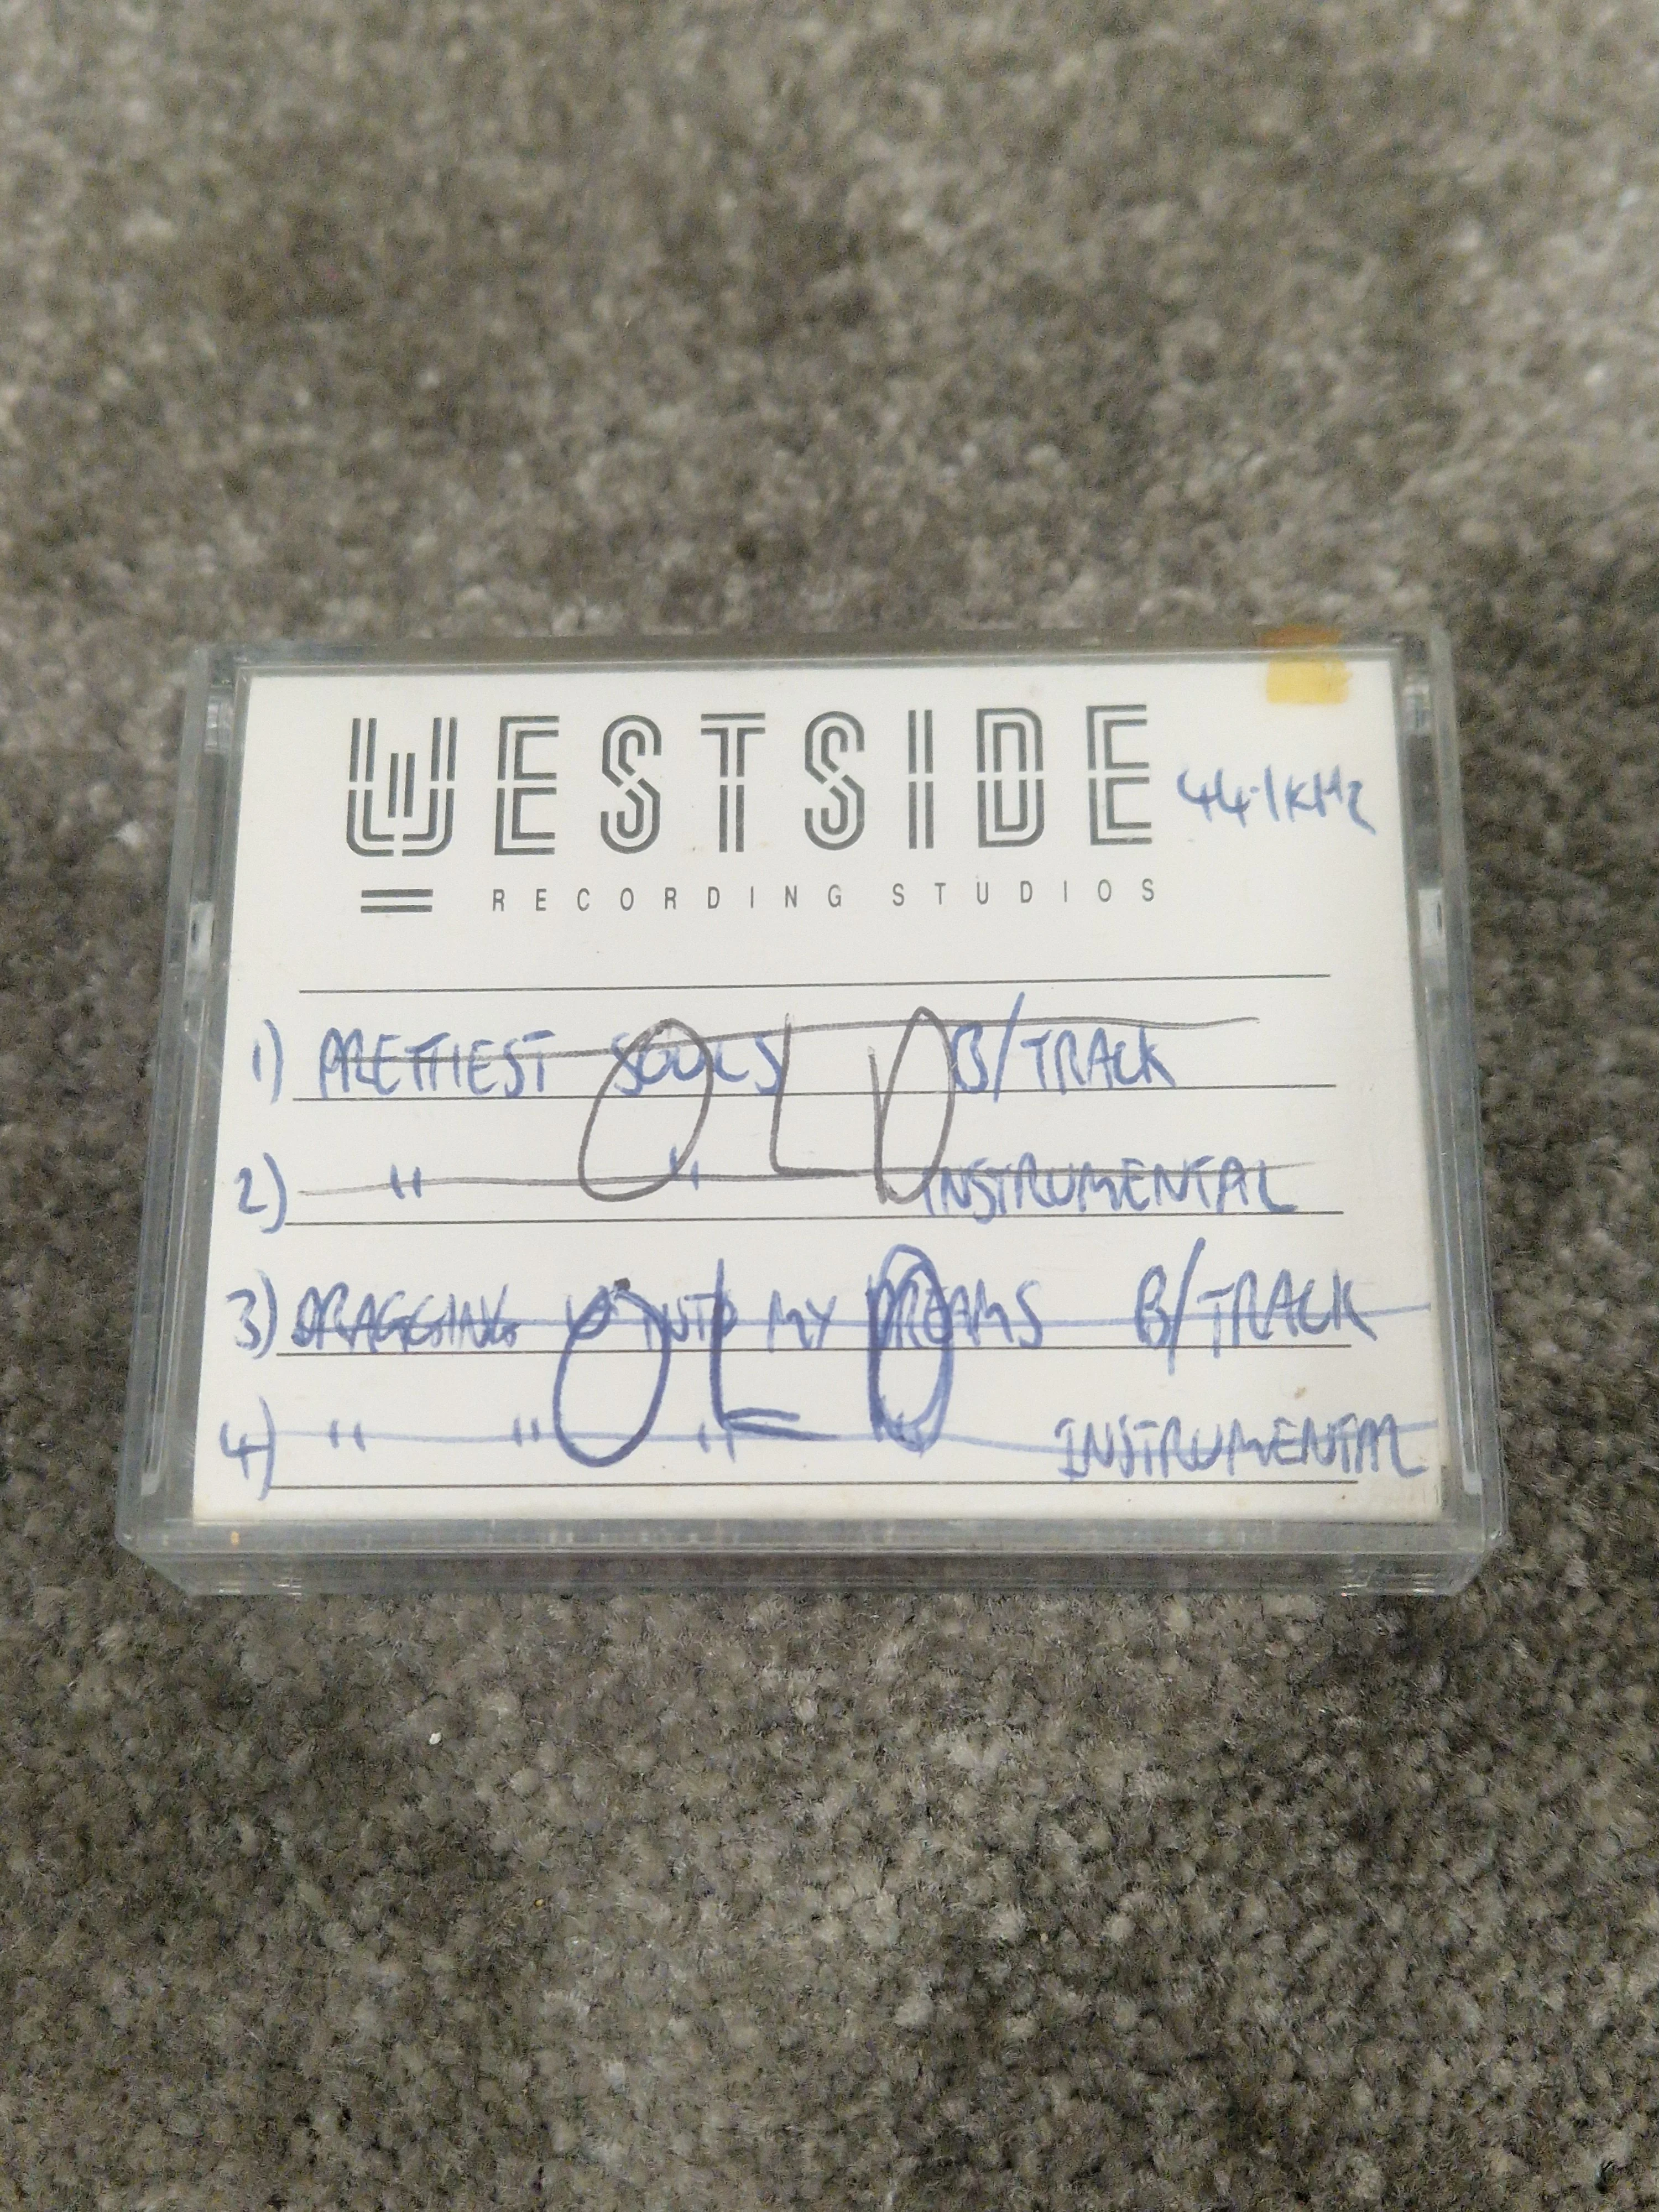 WESTSIDE
44.1KHz
= RECORDING STUDIOS
1) PRETTIEST SOULS B/TRACK
OLD
2) " " INSTRUMENTAL
3) DRAGGING INTO MY DREAMS B/TRACK
OLD
4) " " " " INSTRUMENTAL